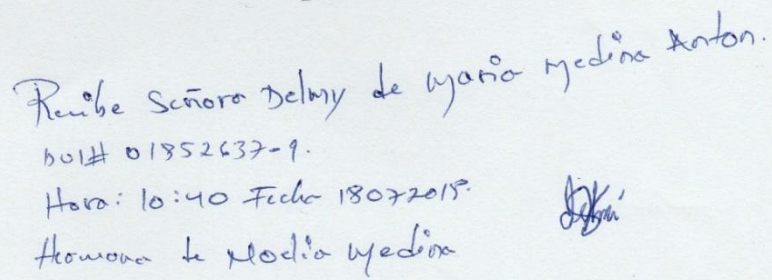 Recibe Señora Delmy de Maria Medina Anton.
DUI# 01852637-9.
Hora: 10:40 Fecha 18072018.
Hermana de Medina